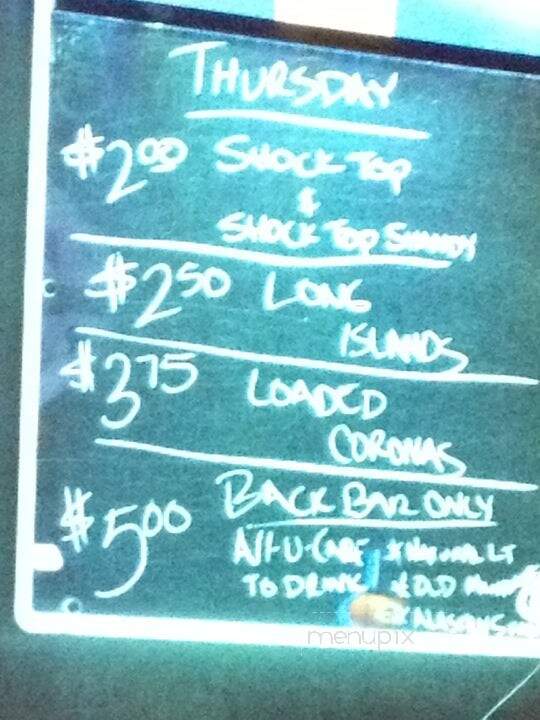 THURSDAY
$2.00 SHOCK TOP
&
SHOCK TOP SHANDY
$2.50 LONG
ISLANDS
$3.75 LOADED
CORONAS
$5.00 BACK BAR ONLY
ALL-U-CARE LT
TO DRINK OLD
menupix